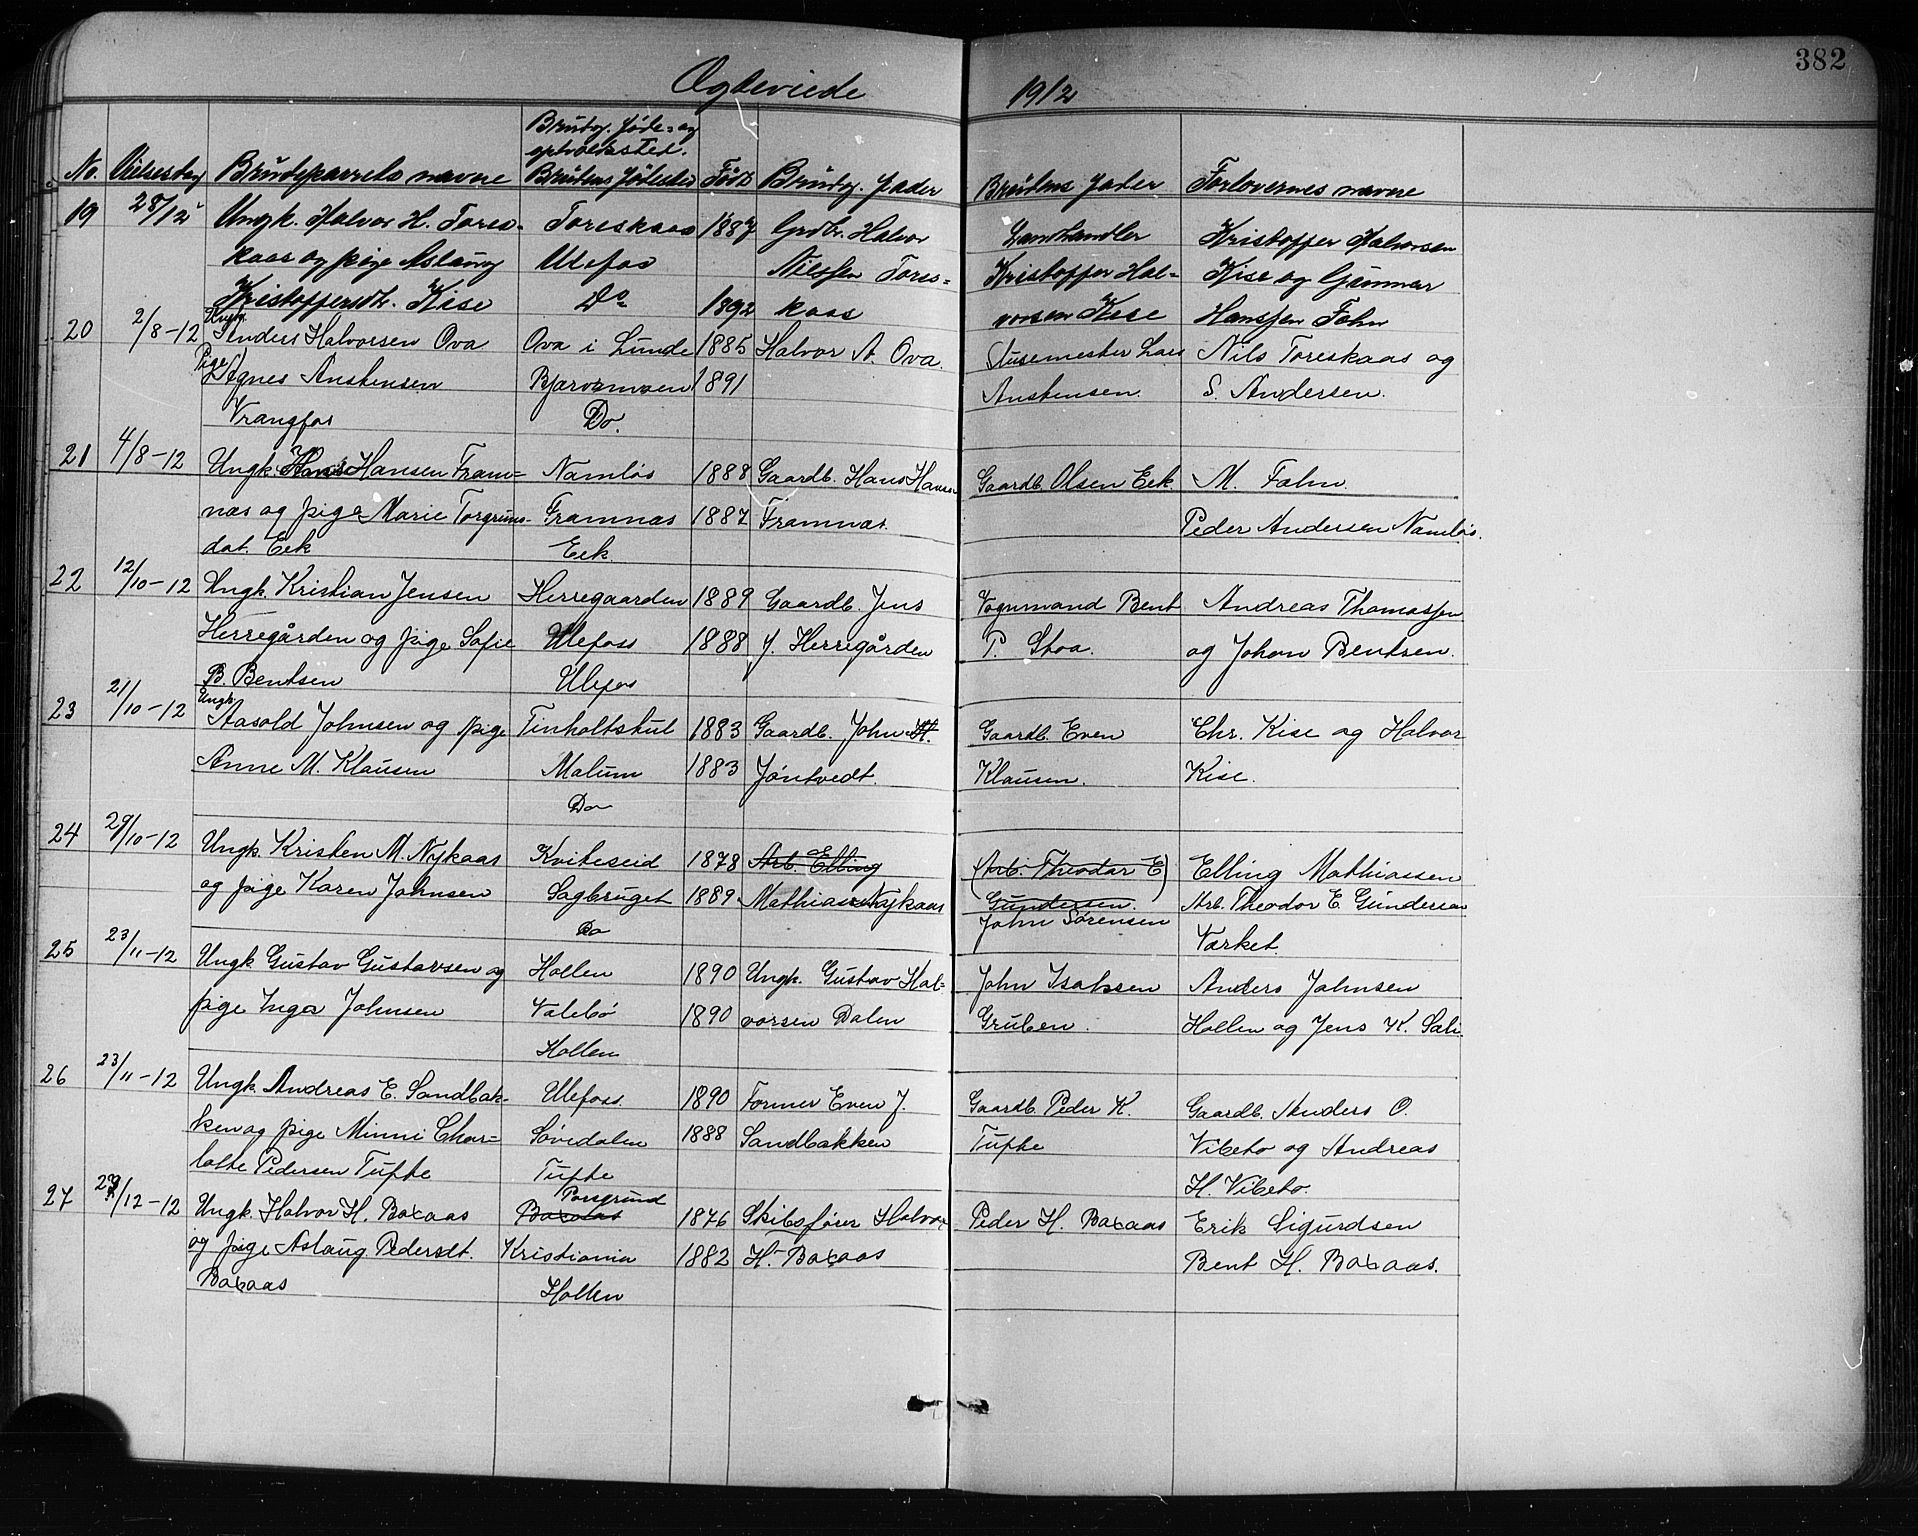 382
Ægteviede 1912
No. Vielsesdag Brudeparrets navne Brudg. føde- og opholdssted. Brudens fødested Født Brudg. fader Brudens fader Forlovernes navne
19 Ungk. Halvor H. Tores- Toreskaas 1887 Grdbr. Halvor Landhandler Kristoffer Halvorsen
kaas og pige Aslaug Ulefos Nilssen Tores- Kristoffer Hal- Kise og Gunnar
Kristoffersdtr. Kise Do 1892 kaas vorsen Kise Hanssen Fahn
20 2/8-12 Ungk. Anders Halvorsen Ova Ova i Lunde 1885 Halvor A. Ova. Slusemester Lars Nils Toreskaas og
Pige Agnes Anstensen 1891 Anstensen. S. Andersen.
Vrangfos Do.
21 4/8-12 Ungk. Hans Hansen Fram- Namløs 1888 Gaardb. Hans Hansen Gaardb. Olsen Eek. M. Fahn.
næs og pige Marie Torgruns- Framnæs 1887 Framnæs. Peder Andersen Namløs.
dat. Eek Eek.
22 12/10-12 Ungk. Kristian Jensen Herregaarden 1889 Gaardb. Jens Vognmand Bent Andreas Thomassen
Herregården og pige Sofie Ulefoss 1888 J. Herregården P. Stoa. og Johan Bentsen.
B. Bentsen Ulefos
23 21/10-12 Ungk. Aasold Johnsen og pige Tinholtstul 1883 Gaardb. John H. Gaardb. Even Chr. Kise og Halvor
Anne M. Klausen Melum 1883 Jøntvedt. Klausen. Kise.
Do
24 29/10-12 Ungk. Kristen M. Nykaas Kviteseid 1878 Arb. Elling (Arb. Theodor E) Elling Mathiassen
og pige Karen Johnsen Sagbruget 1889 Mathiassen Nykaas Gundersen. Arb. Theodor E. Gundersen
Do John Sørensen Værket.
25 23/11-12 Ungk. Gustav Gustavsen og Hollen 1890 Ungk. Gustav Hal- John Isaksen Anders Johnsen
pige Inga Johnsen Valebø 1890 vorsen Dalen Gruben. Hollen og Jens K. Sæli.
Hollen
26 23/11-12 Ungk. Andreas E. Sandbak- Ulefoss. 1890 Former Even J. Gaardb. Peder K. Gaardb. Anders O.
ken og pige Minni Char- Søvedalen 1888 Sandbakken Tufte Vibeto og Andreas
lotte Pedersen Tufte Tufte H. Vibeto.
27 29/12-12 Ungk. Halvor H. Baxaas Baxaas Porsgrund 1876 Skibsfører Halvor Peder H. Baxaas Erik Sigurdsen
og pige Aslaug Pedersdt. Kristiania 1882 H. Baxaas Bent H. Baxaas.
Baxaas Hollen